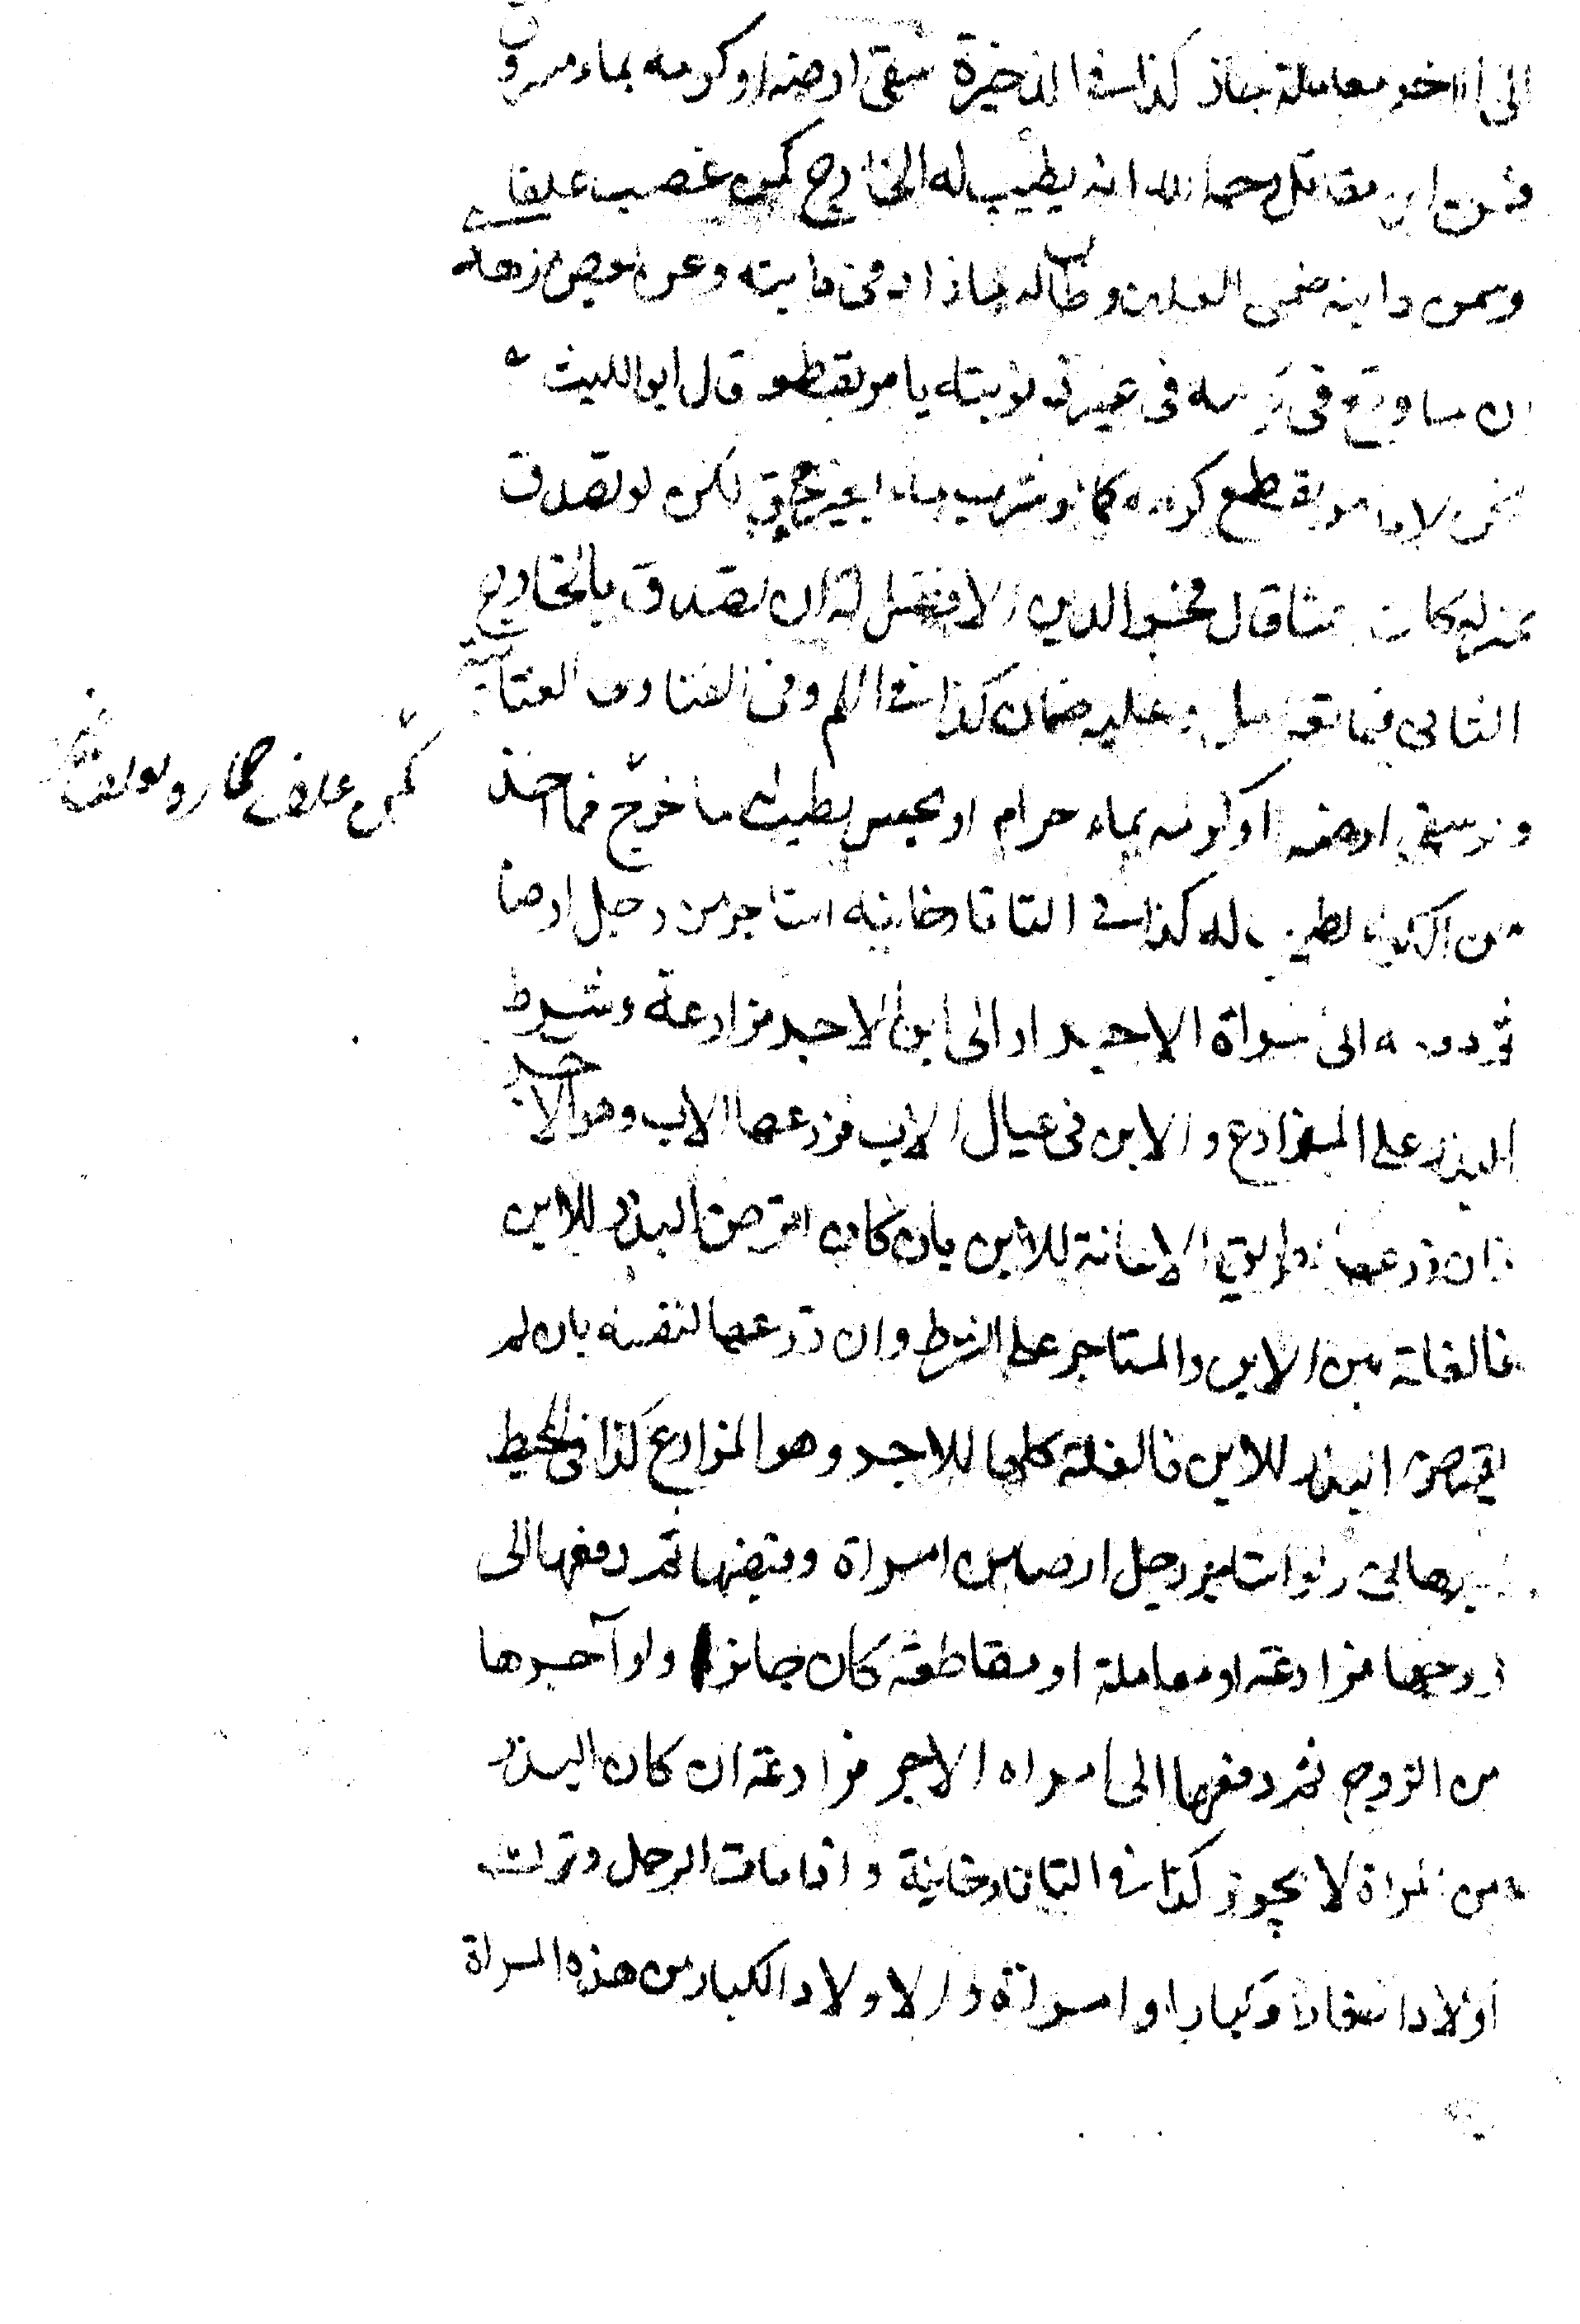 الى الاخر معاملة جاز كذا في الذخيرة سقى ارضه او كرمه بماء مسروق
فعن ابن مقاتل رحمه الله انه يطيب له الخارج كمن غصب علفا
وسمن دابته ضمن العلف وطاب له ما زاد في دابته وعن بعض زهاد
ان ماء وقع في كرمه في غير نوبته يامر بقطع قال ابو الليث
نحن لا نامر بقطع كرمه كما لو شرب ماء بغير حق لكن لو تصدق
بمنزله كان حسنا قال فخر الدين الافضل له ان تصدق بالخارج
الثاني فيما تعامل عليه ضمان كذا في وفي الفتاوى العتابية
ولو سقى ارضه او كرمه بماء حرام او نجس يطيب له ما خرج فما اخذ
من الكراء يطيب له كذا في التاتارخانية استاجر من رجل ارضا
ثم دفعه الى امراة الاجير او الى ابن الاجير مزارعة وشرط
البذر على المزارع والابن في عيال الاب فزرعها الاب وهو الاجير
فان زرعها بطريق الاعانة للابن بان كان اقرض البذر للابن
فالغلة بين الابن والمستاجر على الشرط وان زرعها لنفسه بان لم
يقرض البذر للابن فالغلة كلها للاجير وهو المزارع كذا في المحيط
ولو استاجر رجل ارضا من امراة وقبضها ثم دفعها الى
زوجها مزارعة او معاملة او مقاطعة كان جائزا ولو آجرها
من الزوج ثم دفعها الى امراه الاجر مزارعة ان كان البذر
من المراة لا يجوز كذا في التاتارخانية واذا مات الرجل وترك
اولادا صغارا وكبارا وامراة والاولاد الكبار من هذه المراة
كمن علف حماره